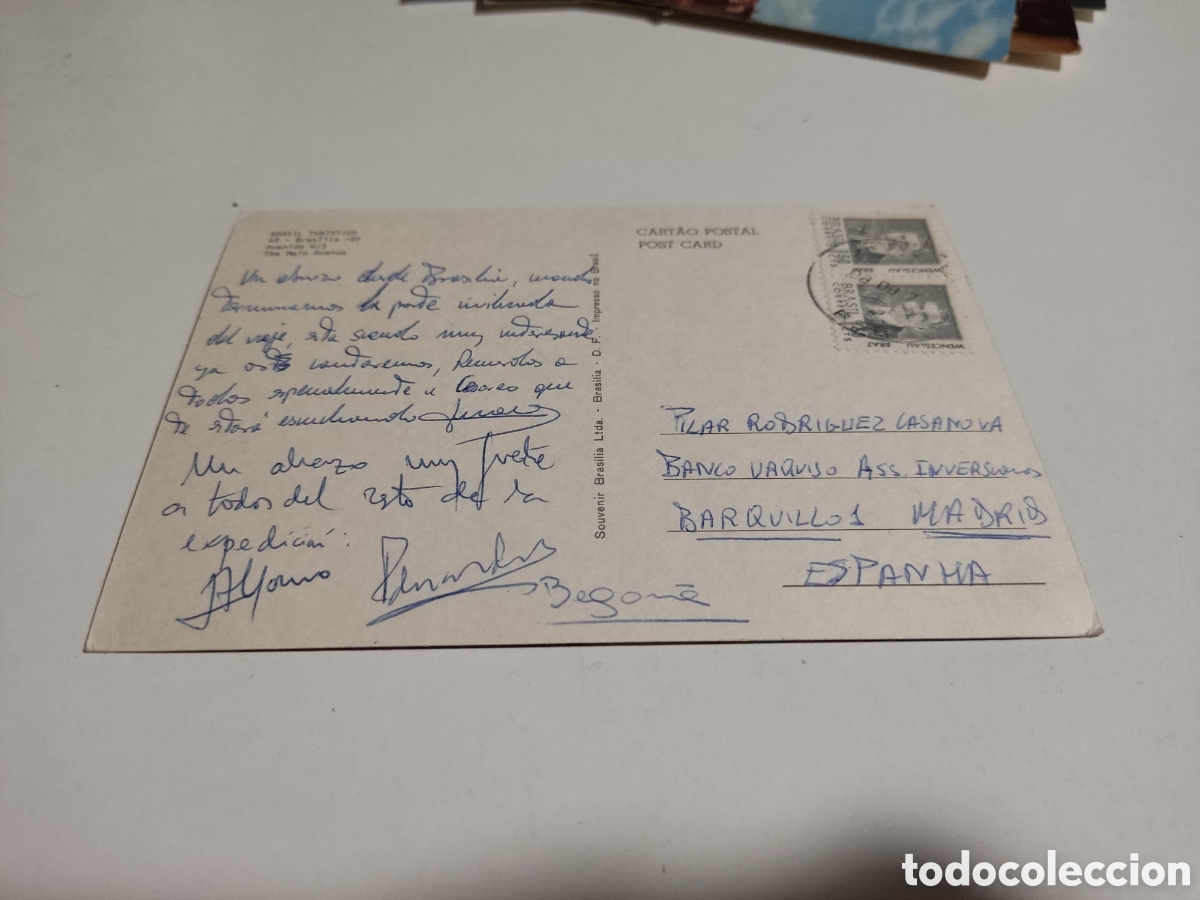 BRASIL TURÍSTICO
Brasília -DF
Avenida W/3
The Main Avenue
Un abrazo desde Brasilia, cuando
terminamos la parte civilizada
del viaje, está siendo muy interesante
ya os contaremos, Recuerdos a
todos especialmente a que
te estará escuchando
Un abrazo muy fuerte
a todos del resto de la
expedición:
Alfonso
Begoña
Souvenir Brasilia Ltda. - Brasilia - D. F. - Impresso no Brasil
CARTÃO POSTAL
POST CARD
BRASIL
CORREIO
WENCESLAU
BRAZ
BRASIL
CORREIO
WENCESLAU
BRAZ
PILAR RODRIGUEZ CASANOVA
BANCO ASS. INVERSIONES
BARQUILLO 1 MADRID
ESPANHA
todocoleccion